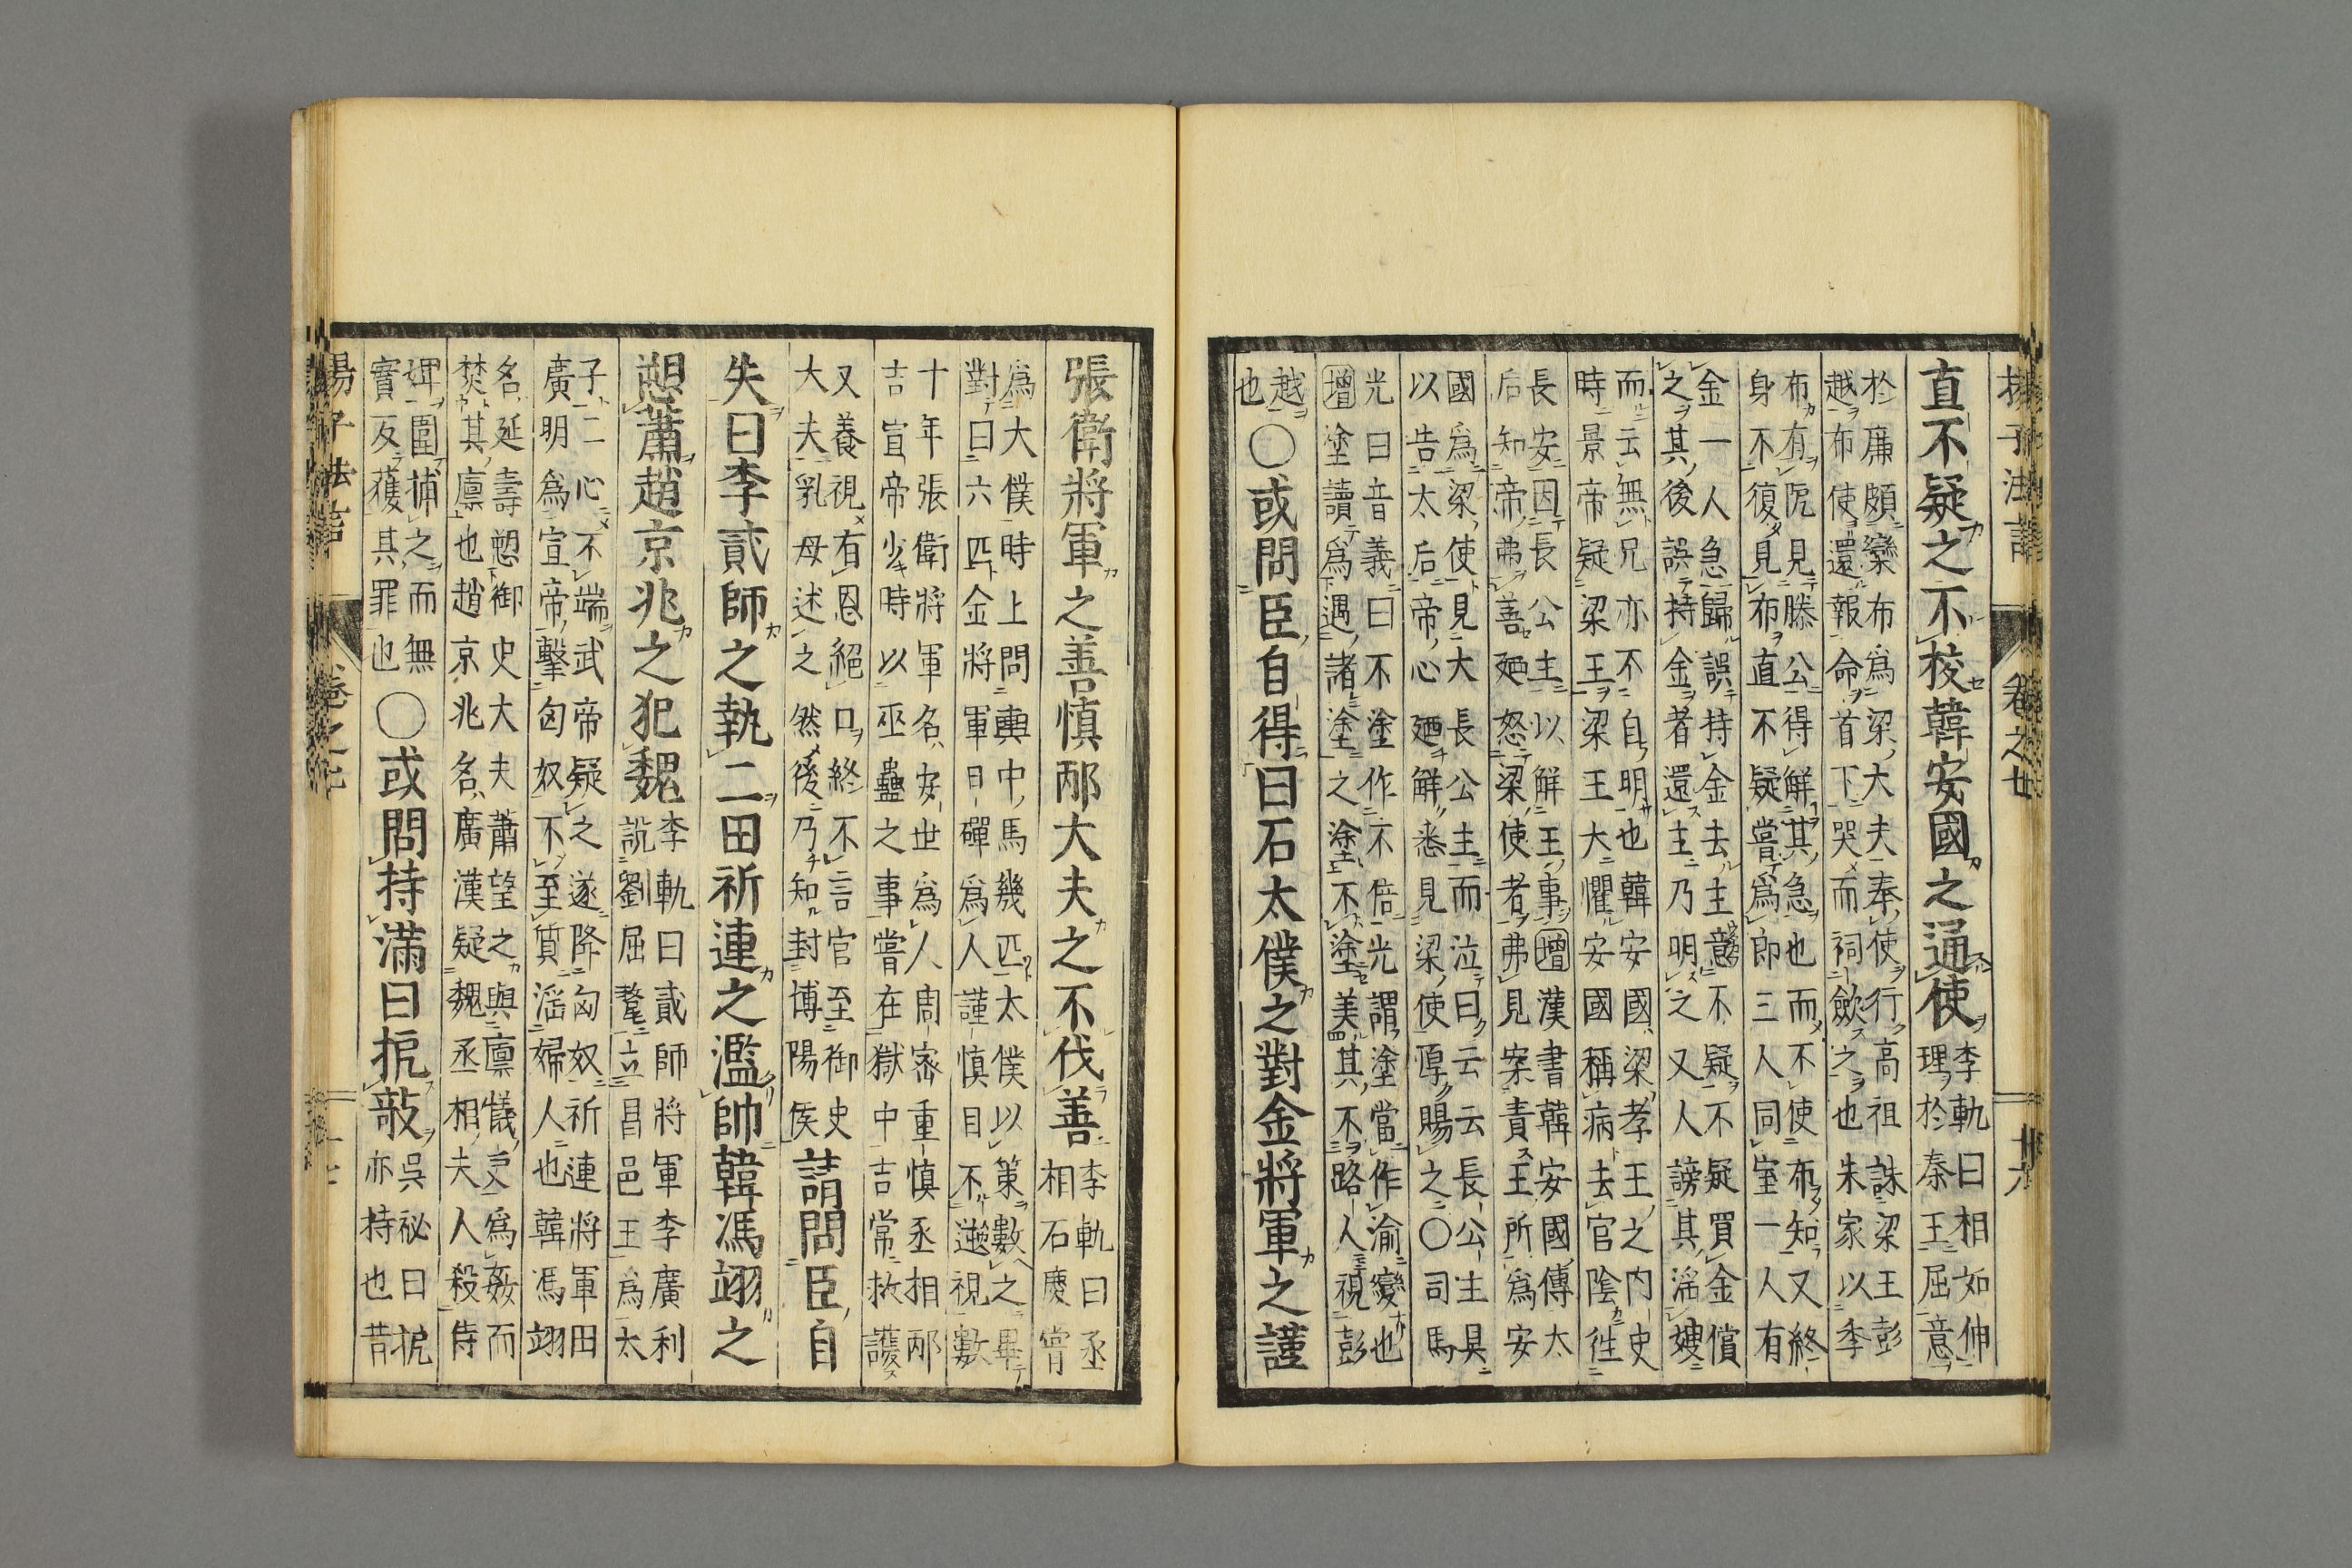 直不疑之不校韓安國之通使
李軌曰相如伸
理於秦王屈意
於廉頗欒布爲梁大夫奉使行高祖誅梁王彭
越布使還報命首下哭而祠歛之也朱家以季
布有阨見滕公得解其急也而不使布知又終
身不復見布直不疑嘗爲郎三人同室一人有
金一人急歸誤持金去主意不疑不疑買金償
之其後誤持金者還主乃明之又人謗其淫嫂
而云無兄亦不自明也韓安國梁孝王之内史
時景帝疑梁王梁王大懼安國稱病去官陰徃
長安因長公主以解王事増漢書韓安國傳太
后知帝弗善廼怒梁使者弗見案責王所爲安
國爲梁使見大長公主而泣曰云云長公主具
以告太后帝心廼解悉見梁使厚賜之○司馬
光曰音義曰不塗作不倍光謂塗當作渝變也
増塗讀爲遇諸塗之塗不塗美其不路人視彭
越
也
○或問臣自得曰石太僕之對金將軍之謹
張衛將軍之善愼邴大夫之不伐善
李軌曰丞
相石慶甞
爲大僕時上問輿中馬幾匹太僕以策數之畢
對曰六匹金將軍日磾爲人謹愼目不迆視數
十年張衛將軍名安世爲人周密重愼丞相邴
吉宣帝少時以巫蠱之事嘗在獄中吉常救護
又養視有恩絕口終不言官至御史
大夫乳母述之然後乃知封博陽侯
請問臣自
失曰李貳師之執二田祈連之濫帥韓馮翊之
愬蕭趙京兆之犯魏
李軌曰貳師將軍李廣利
説劉屈氂立昌邑王爲太
子二心不端武帝疑之遂降匈奴祈連將軍田
廣明爲宣帝擊匈奴不至質淫婦人也韓馮翊
名延壽愬御史大夫蕭望之與廩犧吏爲姦而
焚其廩也趙京兆名廣漢疑魏丞相夫人殺侍
婢圍捕之而無
實反獲其罪也
○或問持滿曰扼敧
吳祕曰扼
亦持也昔